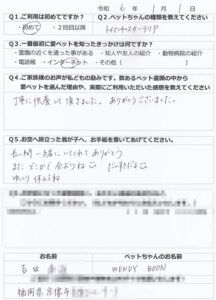 令和 6 年 1 月 1 日
Q1.ご利用は初めてですか？
・初めて ・2回目以降
Q2.ペットちゃんの種類を教えてください
Q3.一番最初に愛ペットを知ったきっかけは何ですか？
・霊園の近くを通った事がある ・知人や友人の紹介 ・動物病院の紹介
・電話帳 ・インターネット
Q4.ご家族様のお声が私どもの励みです。数あるペット霊園の中から
愛ペットを選んだ理由や、実際にご利用いただいた感想を教えてください
丁寧に供養して頂きました。ありがとうございました。
Q5.お空へ旅立った我が子へ、お手紙を書いてあげてください。
長い間一緒にいてくれてありがとう
また どこかで 会おうね
だいすきだよ
ゆっくり 休んでね
お名前
ペットちゃんのお名前
吉田
WENDY BOON
福岡県宗像市